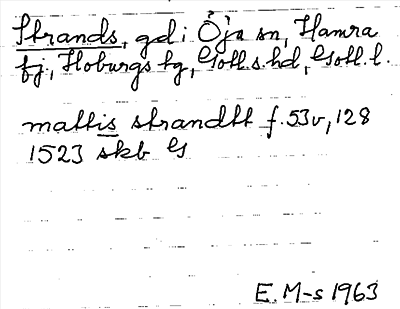 Strands, gd i Öja sn, Hamra
fj, Hoburgs tg, Gotl.s.hd, Gotl.l.
mattis strandtt f.53v, 128
1523 skb G
E. M-s 1963